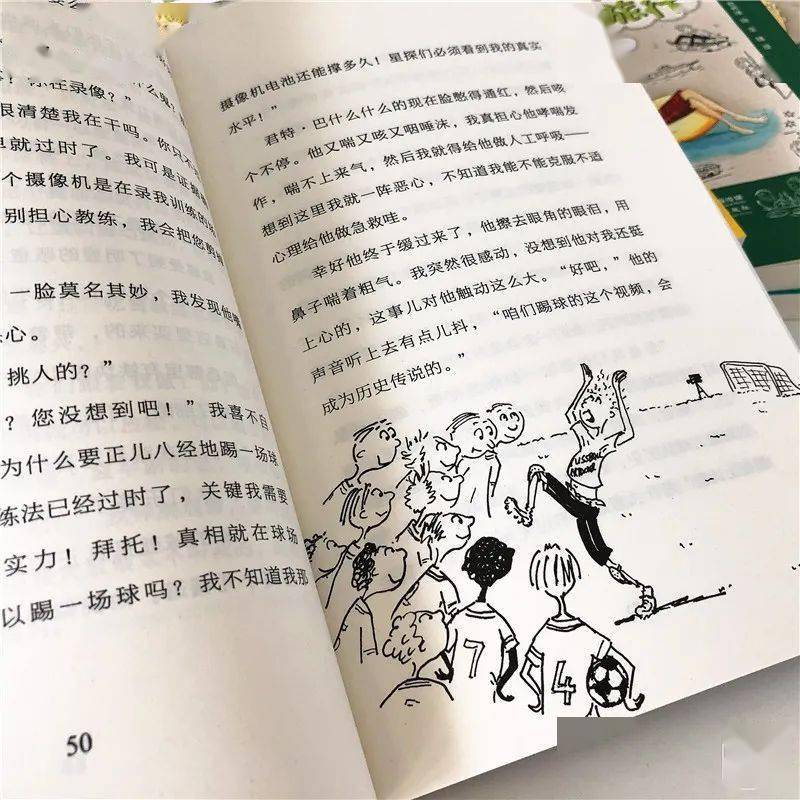 你在录像？”
很清楚我在干吗。你只
就过时了。我可是证据
个摄像机是在录我训练的
别担心教练，我会把您剪
一脸莫名其妙，我发现他喉
恶心。
挑人的？”
？您没想到吧！”我喜不自
为什么要正儿八经地踢一场球
练法已经过时了，关键我需要
实力！拜托！真相就在球场
以踢一场球吗？我不知道我那
50
摄像机电池还能撑多久！星探们必须看到我的真实
水平！”
君特·巴什么什么的现在脸憋得通红，然后咳
个不停。他又喘又咳又咽唾沫，我真担心他哮喘发
作，喘不上来气，然后我就得给他做人工呼吸——
想到这里我就一阵恶心，不知道我能不能克服不适
心理给他做急救哇。
幸好他终于缓过来了，他擦去眼角的眼泪，用
鼻子喘着粗气。我突然很感动，没想到他对我还挺
上心的，这事儿对他触动这么大。“好吧，”他的
声音听上去有点儿抖，“咱们踢球的这个视频，会
成为历史传说的。”
FUSSBALL
7
4